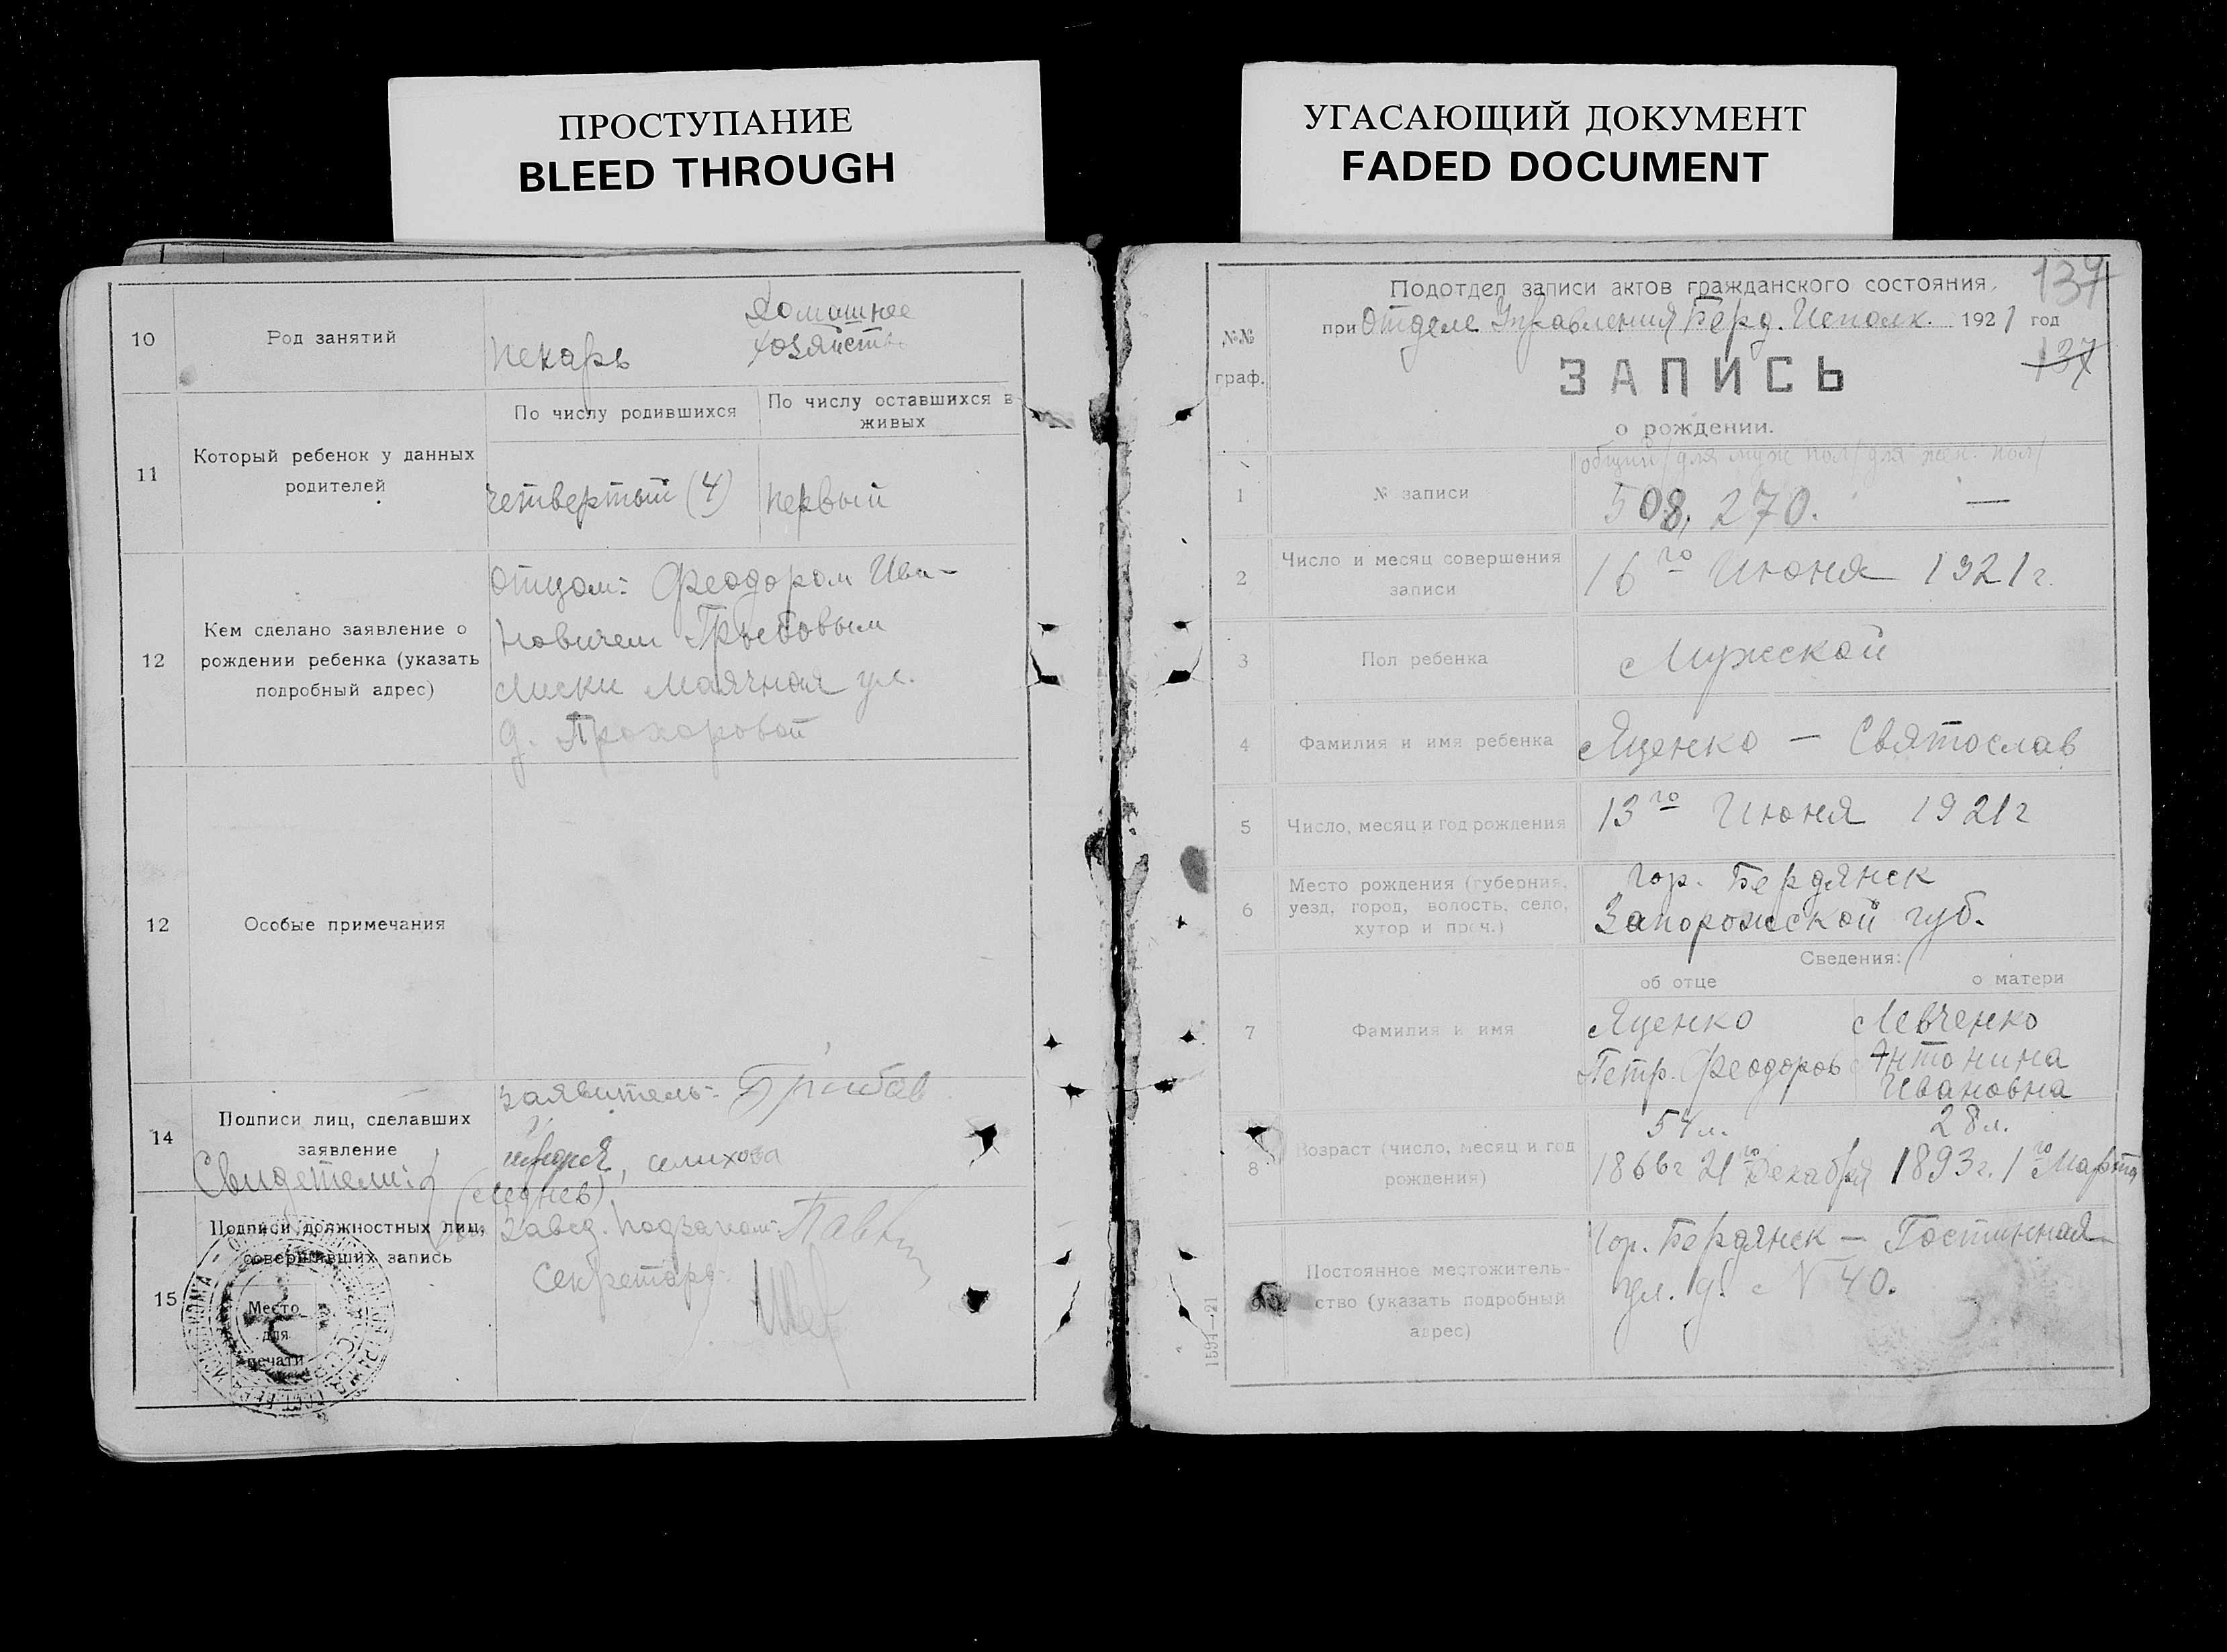 ПРОСТУПАНИЕ
BLEED THROUGH
УГАСАЮЩИЙ ДОКУМЕНТ
FADED DOCUMENT
10
Род занятий
пекарь
домашнее
хозяйство
11
Который ребенок у данных
родителей
По числу родившихся
По числу оставшихся в
живых
четвертый (4)
первый
12
Кем сделано заявление о
рождении ребенка (указать
подробный адрес)
отцом: Феодором Ива-
новичем Грибовым
Лиски Маячная ул.
д. Прохоровой
12
Особые примечания
14
Подписи лиц, сделавших
заявление
Свидетели:
заявитель: Грибов
15
Подписи должностных лиц,
совершивших запись
Место
для
печати
Завед. подзагом:
Секретарь
137
Подотдел записи актов гражданского состояния,
при Отделе Управления Берд. Исполк. 1921 год
137
№№
граф.
ЗАПИСЬ
о рождении.
1
№ записи
общий / для муж. пол / для жен. пол /
508, 270. —
2
Число и месяц совершения
записи
16го Июня 1921 г.
3
Пол ребенка
Мужской
4
Фамилия и имя ребенка
Яценко — Святослав
5
Число, месяц и год рождения
13го Июня 1921 г
6
Место рождения (губерния,
уезд, город, волость, село,
хутор и проч.)
гор. Бердянск
Запорожской губ.
Сведения:
об отце
о матери
7
Фамилия и имя
Яценко
Петр. Феодоров
Левченко
Антонина
Ивановна
8
Возраст (число, месяц и год
рождения)
54 л.
1866 г 21го Декабря
28 л.
1893 г. 1го Марта
9
Постоянное местожитель-
ство (указать подробный
адрес)
Гор. Бердянск — Гостинная
ул. д. № 40.
1594—21